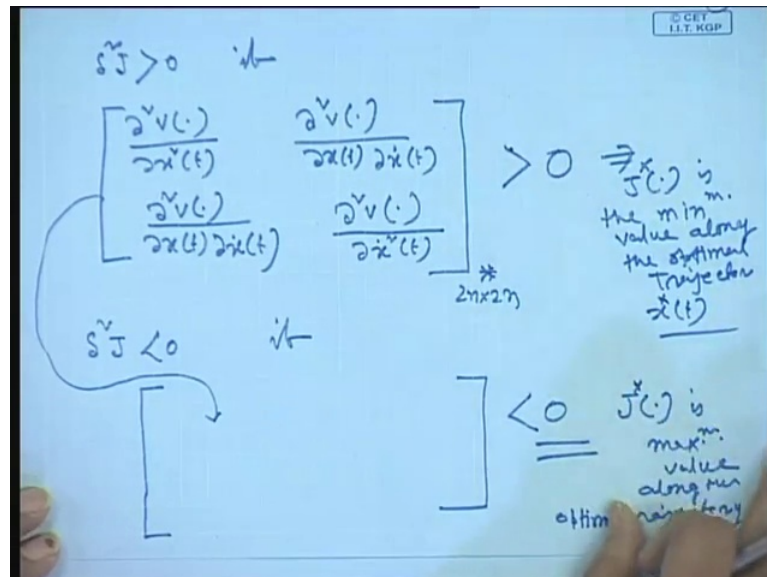 © CET
I.I.T. KGP
δ²J > 0 if
[ ∂²V(·)/∂x²(t) ∂²V(·)/∂x(t) ∂ẋ(t) ]
[ ∂²V(·)/∂x(t) ∂ẋ(t) ∂²V(·)/∂ẋ²(t) ] * 2n×2n > 0 ⇒ J*(·) is
the minm.
value along
the optimal
Trajector
x*(t)
δ²J < 0 if
[ ] < 0 J*(·) is
maxm.
value
along
optim